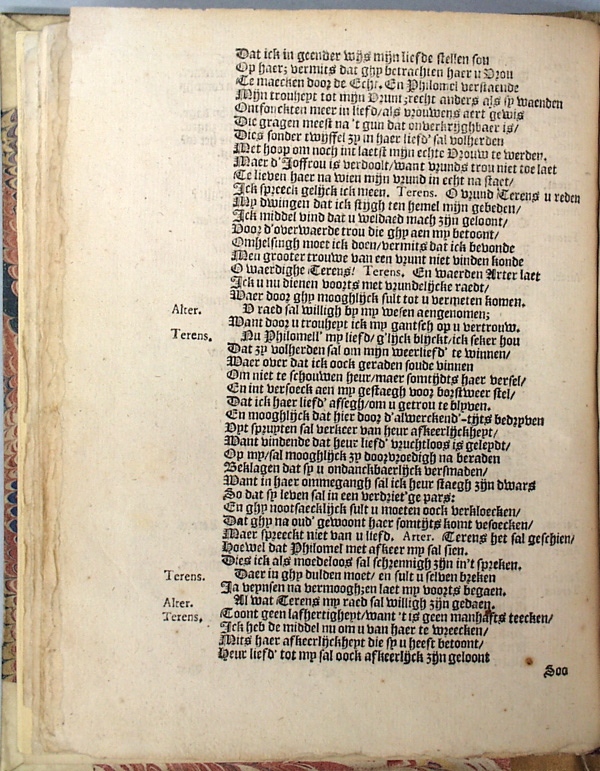 Dat ick in geender wijs mijn liefde stellen sou
Op haer; vermits dat ghy betrachten haer u Vrou
Te maecken door de Echt. En Philomel verstaende
Mijn trouheyt tot mijn Vrunt; recht anders als sy waenden
Ontfonckten meer in liefd/als vrouwens aert gewis
Die gragen meest na 't gun dat onverkrijghbaer is/
Dies sonder twyffel zy in haer liefd' sal volherden
Met hoop om noch int laetst mijn echte Vrouw te werden.
Maer d'Joffrou is verdoolt/want vrunds trou niet toe laet
Te lieven haer na wien mijn vrund in echt na staet/
Ick spreeck gelijck ick meen. Terens. O vrund Terens u reden
My dwingen dat ick stijgh ten hemel mijn gebeden/
Ick middel vind dat u weldaed mach zijn geloont/
Door d'overwaerde trou die ghy aen my betoont/
Omhelsingh moet ick doen/vermits dat ick bevonde
Men grooter trouwe van een vrunt niet vinden konde
O waerdighe Terens! Terens. En waerden Arter laet
Ick u nu dienen voorts met vrundelijcke raedt/
Waer door ghy mooghlijck sult tot u vermeten komen.
Alter. V raed sal willigh by my wesen aengenomen;
Want door u trouheyt ick my gantsch op u vertrouw.
Terens. Nu Philomell' my liefd/ g'lijck blijckt/ick seker hou
Dat zy volherden sal om mijn weerliefd' te winnen/
Waer over dat ick oock geraden soude vinnen
Om niet te schouwen heur/maer somtijdts haer versel/
En int versoeck aen my gestaegh voor borstweer stel/
Dat ick haer liefd' afsegh/om u getrou te blyven.
En mooghlijck dat hier door d'alwerckend'-tijts bedryven
Uyt spruyten sal verkeer van heur afkeerlijckheyt/
Want vindende dat heur liefd' vruchtloos is geleydt/
Op my/sal mooghlijck zy doorvroedigh na beraden
Beklagen dat sy u ondanckbaerlijck versmaden/
Want in haer ommegangh sal ick heur staegh zijn dwars
So dat sy leven sal in een verdriet'ge pars:
En ghy nootsaecklijck sult u moeten oock verkloecken/
Dat ghy na oud' gewoont haer somtijts komt vesoecken/
Maer spreeckt niet van u liefd. Arter. Terens het sal geschien/
Hoewel dat Philomel met afkeer my sal sien.
Dies ick als moedeloos sal schrennigh zijn in't spreken.
Terens. Daer in ghy dulden moet/ en sult u selven breken
Ja veynsen na vermoogh; en laet my voorts begaen.
Alter. Al wat Terens my raed sal willigh zijn gedaen.
Terens. Toont geen lafhertigheyt/want 't is geen manhafts teecken/
Ick heb de middel nu om u van haer te wreecken/
Mits haer afkeerlijckheyt die sy u heeft betoont/
Heur liefd' tot my sal oock afkeerlijck zijn geloont
Soo